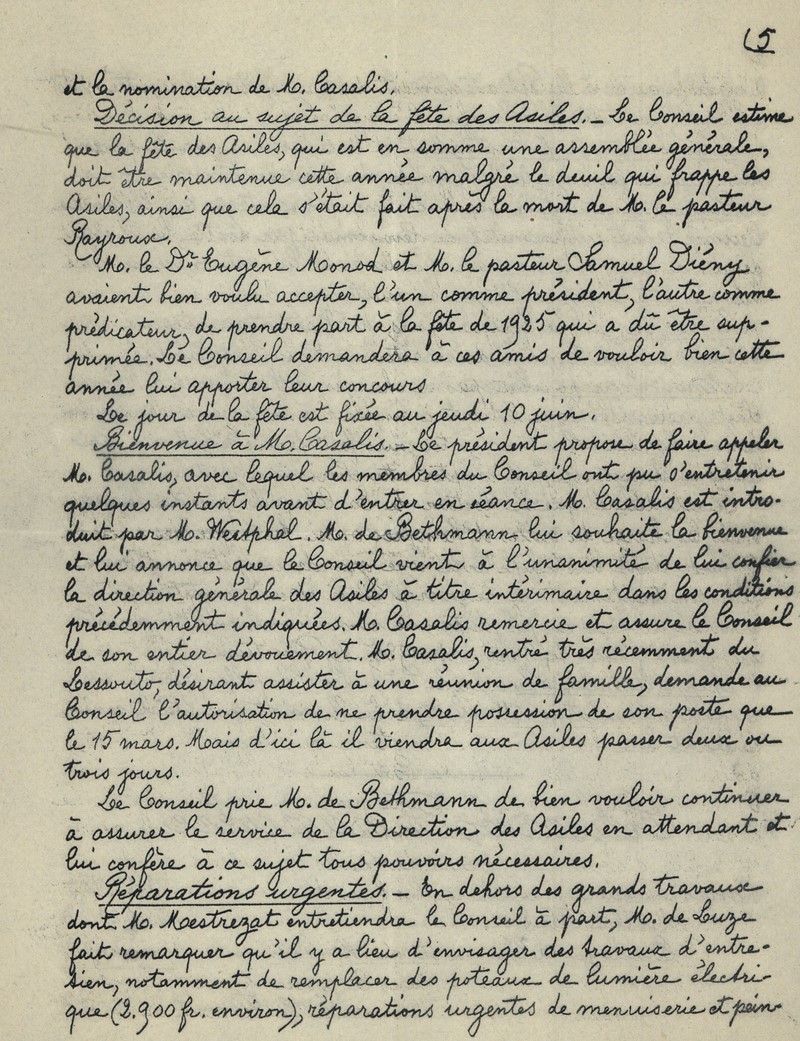 15
et la nomination de M. Casalis.
Décision au sujet de la fête des Asiles. _ Le Conseil estime
que la fête des Asiles, qui est en somme une assemblée générale,
doit être maintenue cette année malgré le deuil qui frappe les
Asiles, ainsi que cela s'était fait après la mort de M. le pasteur
Rayroux.
M. le Dr Eugène Monod et M. le pasteur Samuel Diény
avaient bien voulu accepter, l'un comme président, l'autre comme
prédicateur, de prendre part à la fête de 1925 qui a dû être sup-
primée. Le Conseil demandera à ces amis de vouloir bien cette
année lui apporter leur concours
Le jour de la fête est fixée au jeudi 10 juin.
Bienvenue à M. Casalis. _ Le président propose de faire appeler
M. Casalis, avec lequel les membres du Conseil ont pu s'entretenir
quelques instants avant d'entrer en séance. M. Casalis est intro-
duit par M. Westphal. M. de Bethmann lui souhaite la bienvenue
et lui annonce que le Conseil vient à l'unanimité de lui confier
la direction générale des Asiles à titre intérimaire dans les conditions
précédemment indiquées. M. Casalis remercie et assure le Conseil
de son entier dévouement. M. Casalis, rentré très récemment du
Lessouto, désirant assister à une réunion de famille, demande au
Conseil l'autorisation de ne prendre possession de son poste que
le 15 mars. Mais d'ici là il viendra aux Asiles passer deux ou
trois jours.
Le Conseil prie M. de Bethmann de bien vouloir continuer
à assurer le service de la Direction des Asiles en attendant et
lui confère à ce sujet tous pouvoirs nécessaires.
Réparations urgentes. _ En dehors des grands travaux
dont M. Mestrezat entretiendra le Conseil à part, M. de Luze
fait remarquer qu'il y a lieu d'envisager des travaux d'entre-
tien, notamment de remplacer des poteaux de lumière électri-
que (2.900 fr. environ), réparations urgentes de menuiserie et pein-